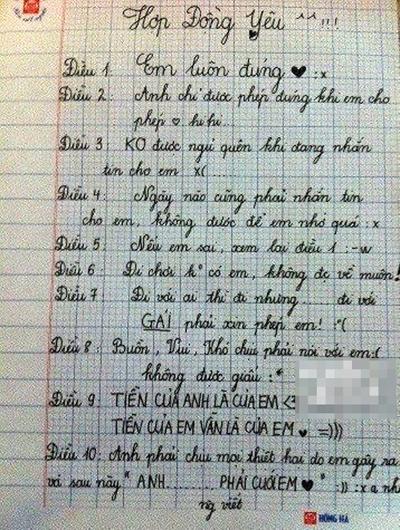 Hợp Đồng Yêu ^^ !!!
Điều 1 : Em luôn đúng ♥ :x
Điều 2 : Anh chỉ được phép đúng khi em cho
phép ♡ hi hi...
Điều 3 : KO được ngủ quên khi đang nhắn
tin cho em x(......
Điều 4 : Ngày nào cũng phải nhắn tin
cho em, không được để em nhớ quá :x
Điều 5 : Nếu em sai, xem lại điều 1 :-w
Điều 6 : Đi chơi k° có em, không đc về muộn!
Điều 7 : Đi với ai thì đi nhưng ...... đi với
GÁI phải xin phép em! :"(
Điều 8 : Buồn, Vui, Khó chịu phải nói với em:(
không được giấu :*
Điều 9 : TIỀN CỦA ANH LÀ CỦA EM <3
TIỀN CỦA EM VẪN LÀ CỦA EM ♥ =)))
Điều 10: Anh phải chịu mọi thiệt hại do em gây ra
và sau này " ANH.......... PHẢI CƯỚI EM ♥ " :)) :x a nh
ng viết
HỒNG HÀ